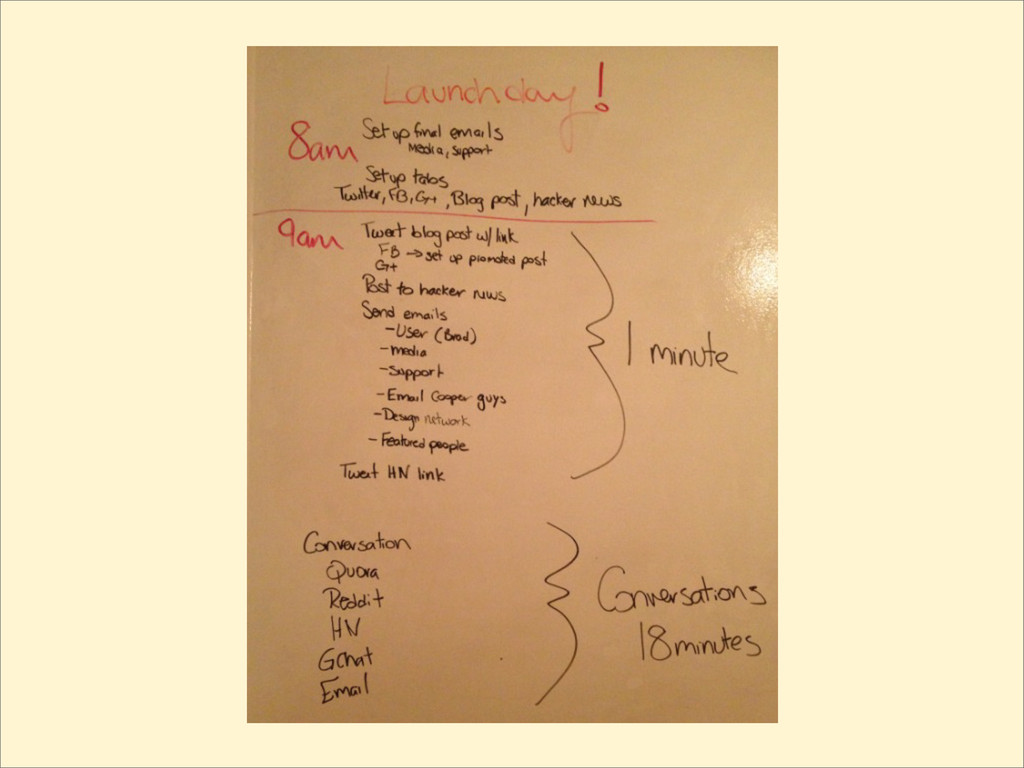 Launch day!
8am
Set up final emails
Media, support
Set up tabs
Twitter, FB, G+, Blog post, hacker news
9am
Tweet blog post w/ link
FB → set up promoted post
G+
Post to hacker news
Send emails
- User (Brad)
- media
- support
- Email Cooper guys
- Design network
- Featured people
Tweet HN link
1 minute
Conversation
Quora
Reddit
HN
GChat
Email
Conversations
18 minutes